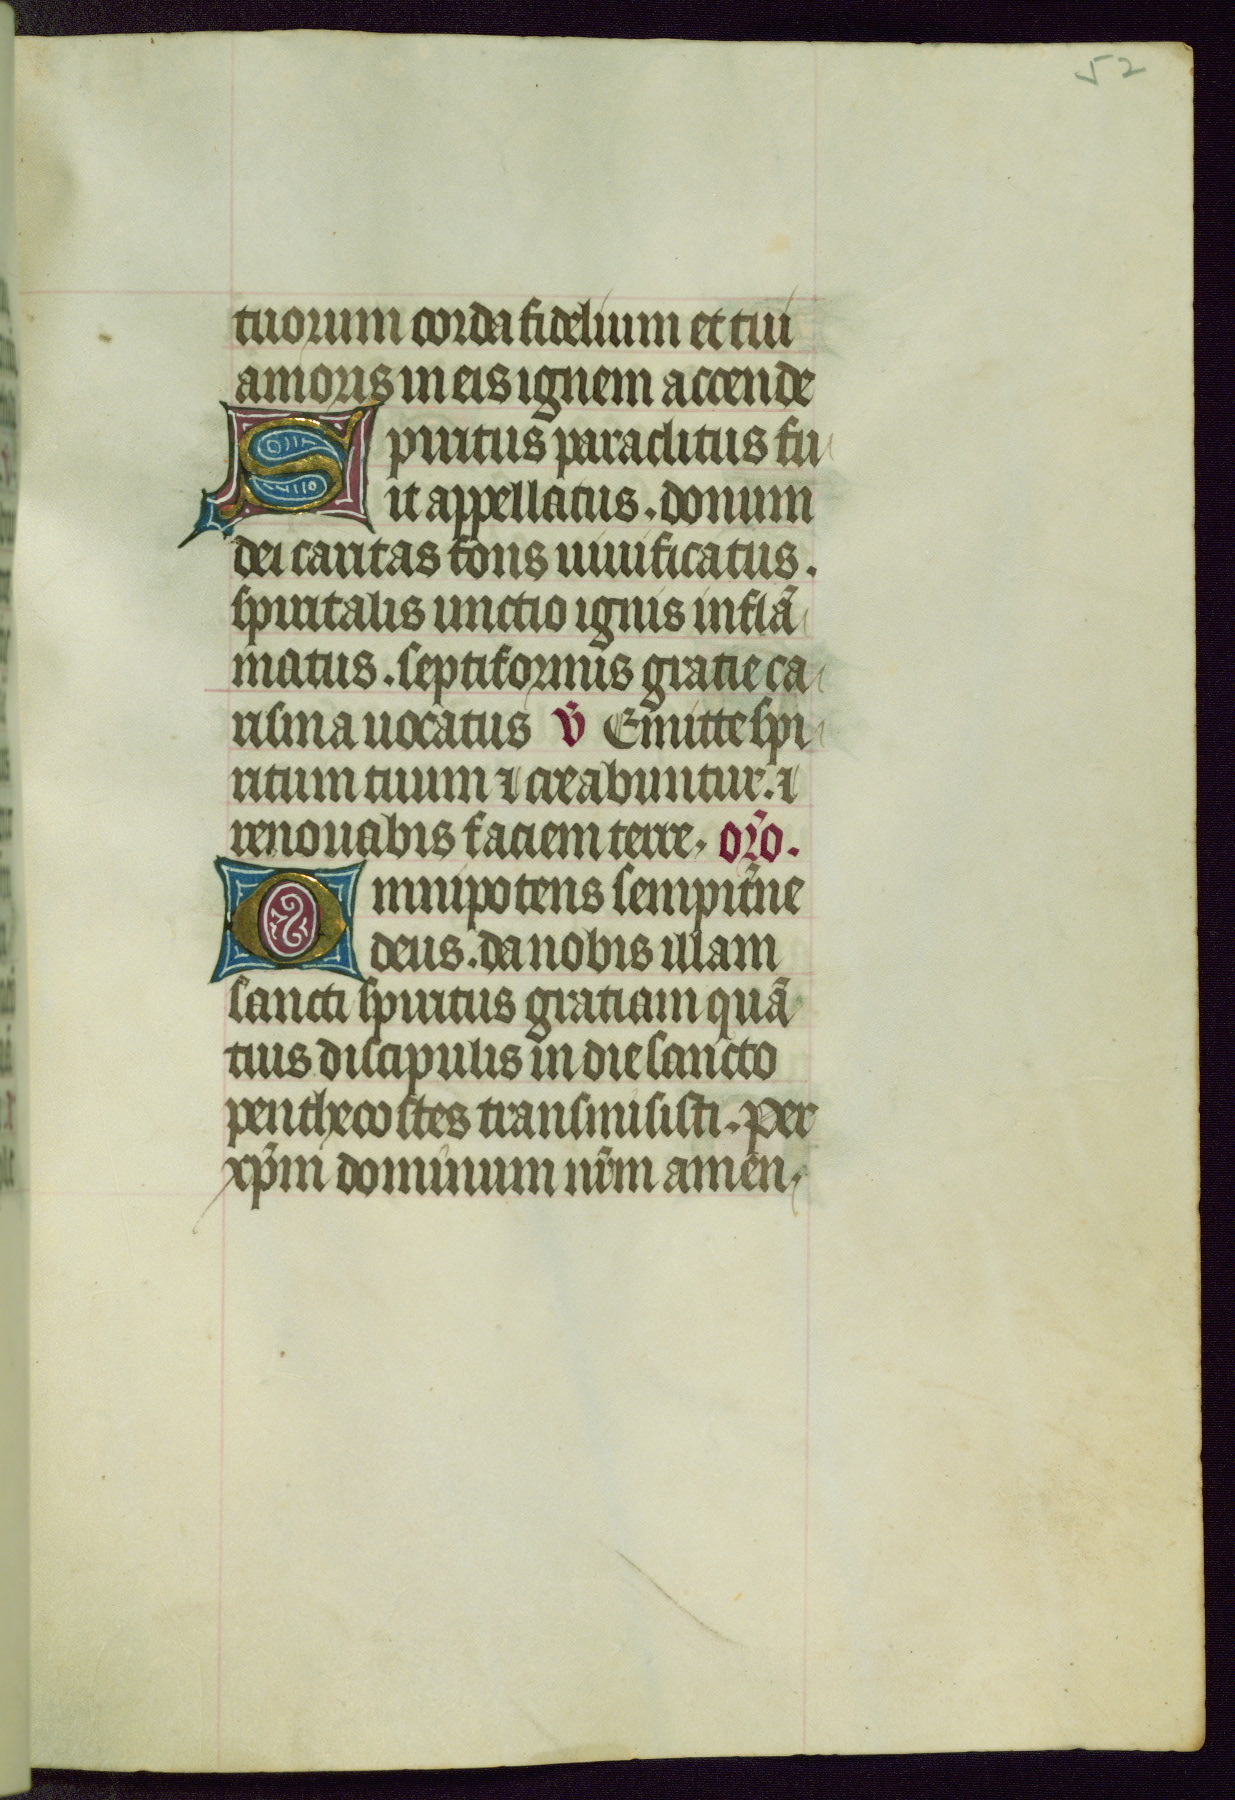 52
tuorum corda fidelium et tui
amoris in eis ignem accende
Spiritus paraclitus fu
it appellatus. donum
dei caritas fons uiuificatus.
spiritalis unctio ignis inflã
matus. septiformis gratie ca
risma uocatus v̄ Emitte spi
ritum tuum ⁊ creabuntur. ⁊
renouabis faciem terre. or̄o.
Omnipotens sempit̄ne
deus. da nobis illam
sancti spiritus gratiam quã
tuis discipulis in die sancto
penthecostes transmisisti. per
xp̄m dominum nr̄m amen.